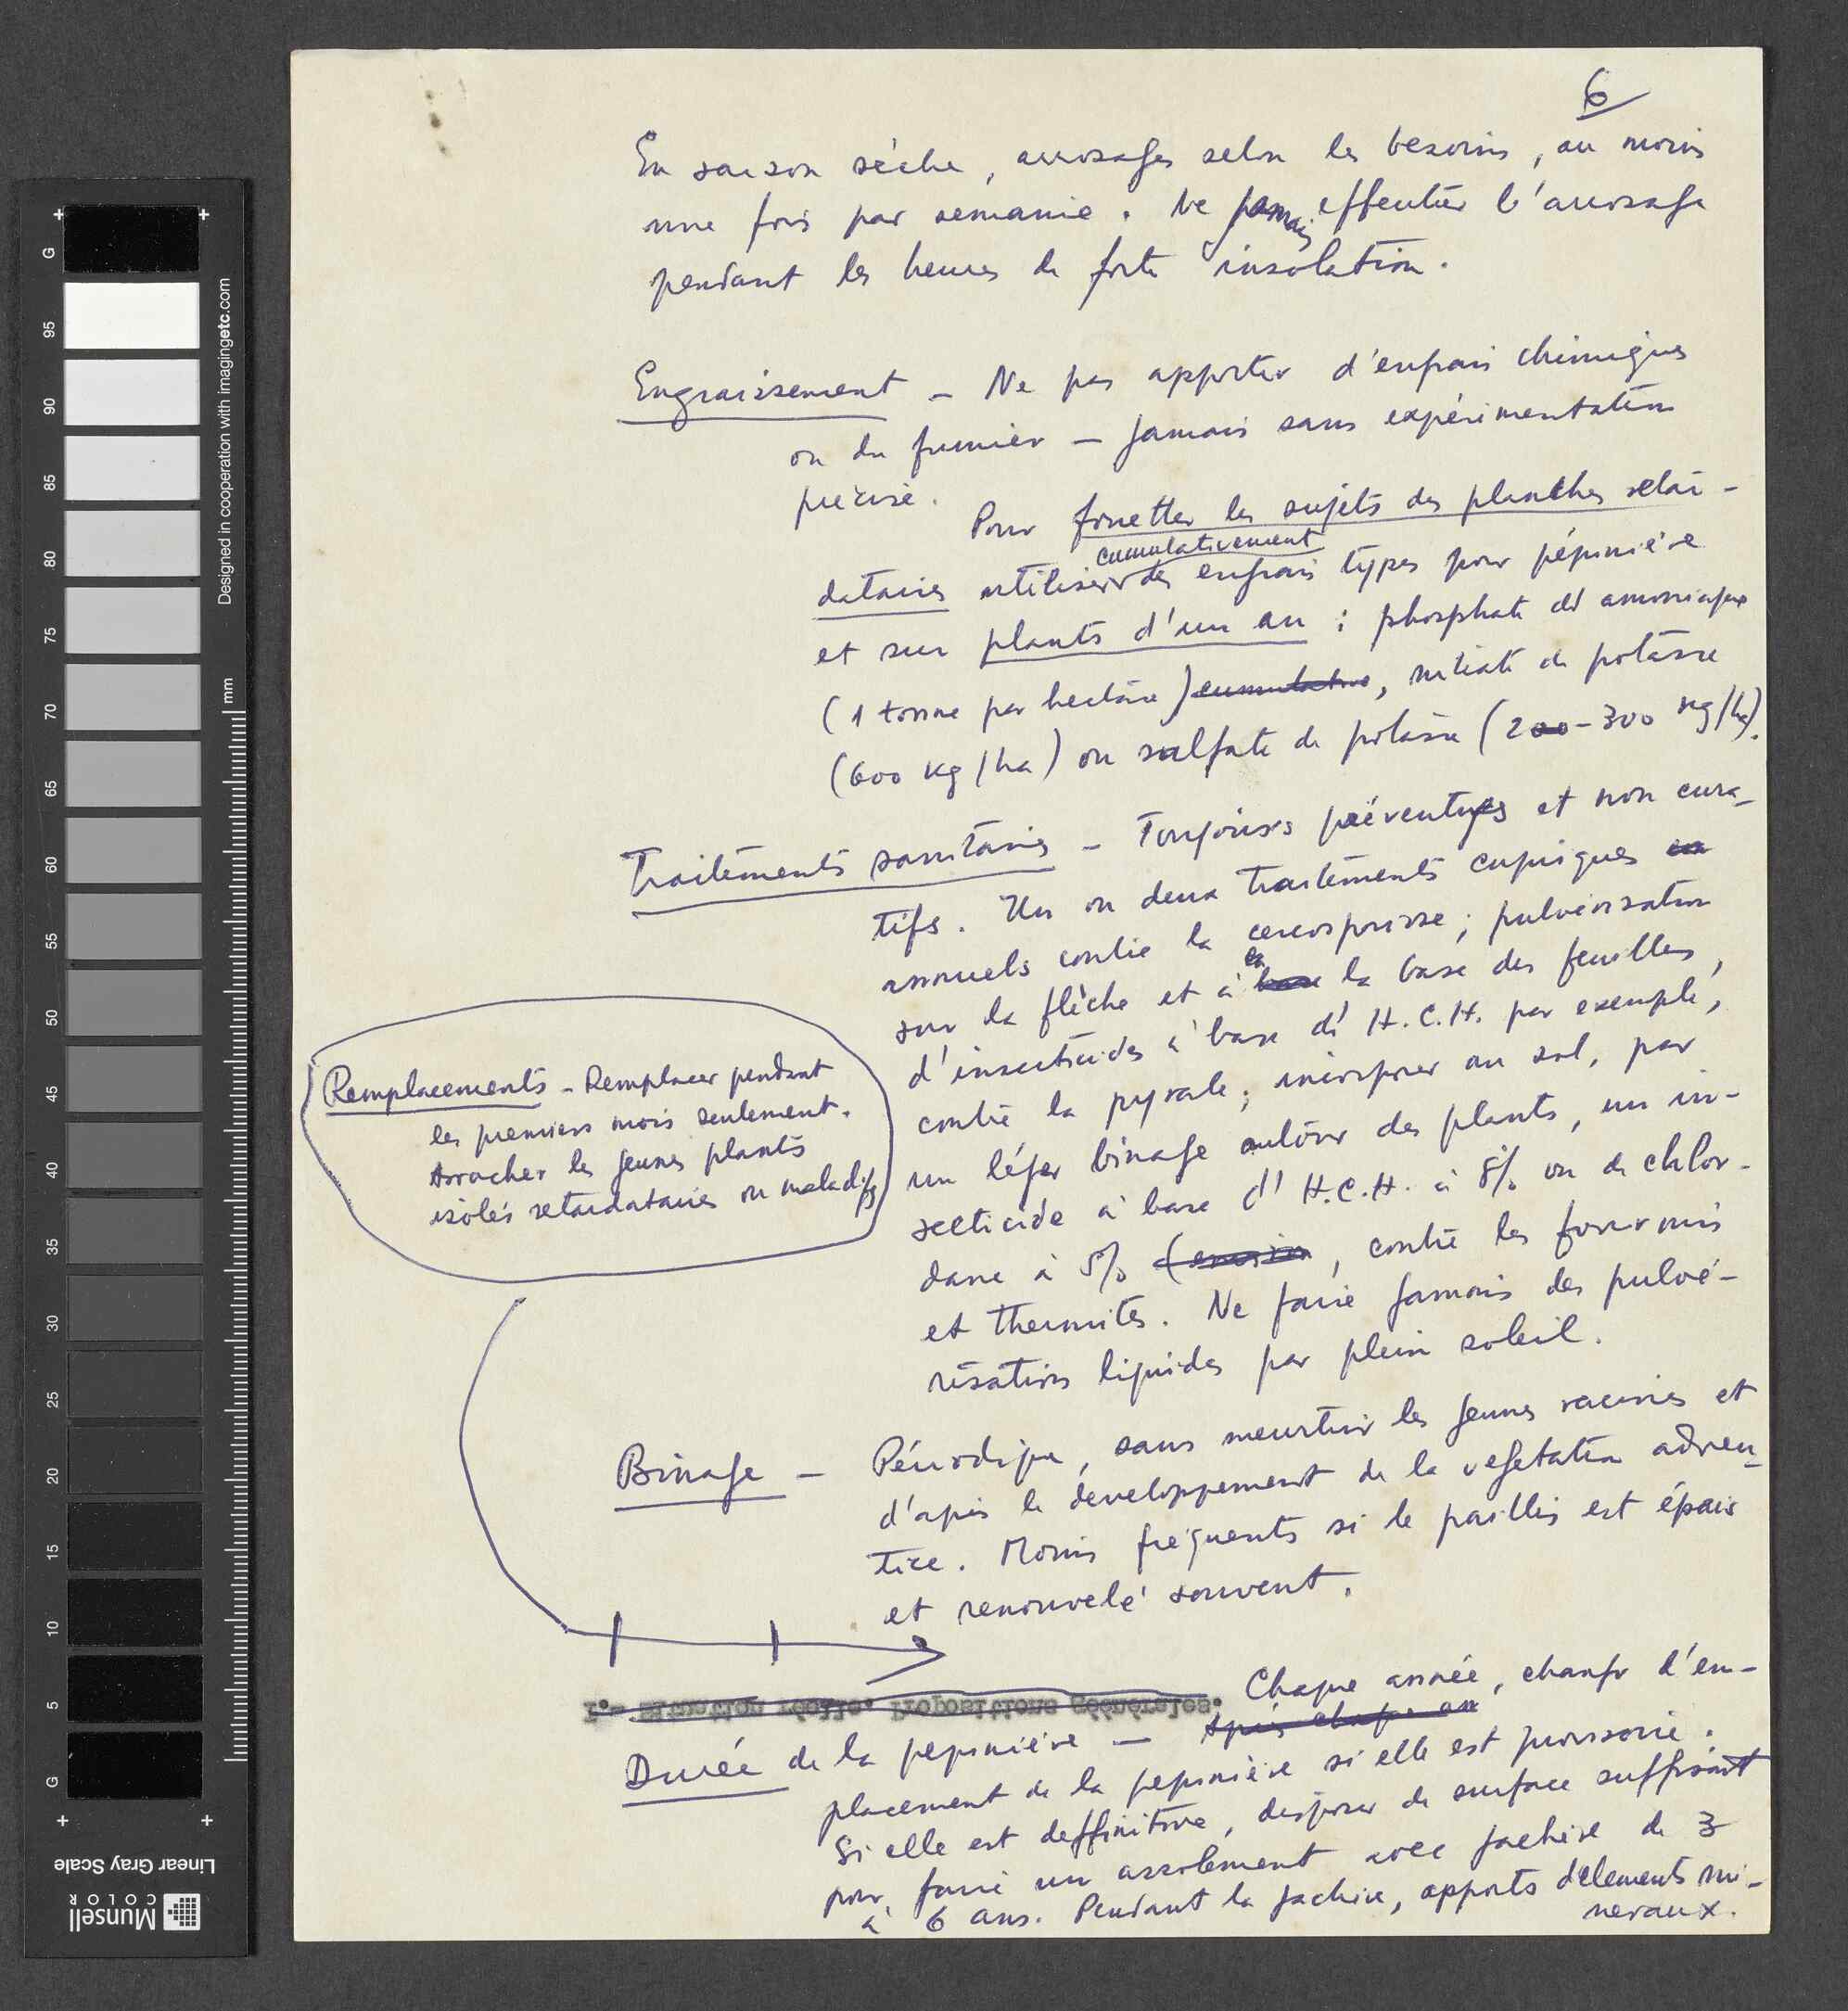 6
En saison sèche, arrosages selon les besoins, au moins
une fois par semaine. Ne jamais effectuer l'arrosage
pendant les heures de forte insolation.
Engraissement – Ne pas apporter d'engrais chimiques
ou du fumier – jamais sans expérimentation
précise.
Pour fouetter les sujets des planches retar-
cumulativement
dataires utiliser des engrais types pour pépinière
et sur plants d'un an : phosphate d'amoniaque
(1 tonne par hectare) cumulative, nitrate de potasse
(600 kg/ha) ou sulfate de potasse (200-300 kg/ha).
Traitements sanitaires – Toujours préventifs et non cura-
tifs. Un ou deux traitements cupriques en
annuels contre la cercosporiose; pulvérisation
la
sur la flèche et à base la base des feuilles,
d'insecticides à base d'H.C.H. par exemple,
contre la pyrale; incorporer au sol, par
un léger binage autour des plants, un in-
secticide à base d'H.C.H. à 8% ou de chlor-
dane à 5% , contre les fourmis
et thermites. Ne faire jamais des pulvé-
risations liquides par plein soleil.
Remplacements – Remplacer pendant
les premiers mois seulement.
Arracher les jeunes plants
isolés retardataires ou maladifs
Binage – Périodique, sans meurtrir les jeunes racines et
d'après le developpement de la vegetation adven-
tice. Moins fréquents si le paillis est épais
et renouvelé souvent.
I.- Situation réelle. Propositions générales.
Chaque année, changer d'em-
Après chaque an
Durée de la pepinière –
placement de la pepinière si elle est provisoire.
Si elle est deffinitive, disposer de surface suffisant
pour faire un assolement avec jachère de 3
à 6 ans. Pendant la jachère, apports d'elements mi-
neraux.
Designed in cooperation with imagingetc.com
mm
G 95 90 85 80 75 70 65 60 55 50 45 40 35 30 25 20 15 10 5 G
Linear Gray Scale
Munsell
COLOR